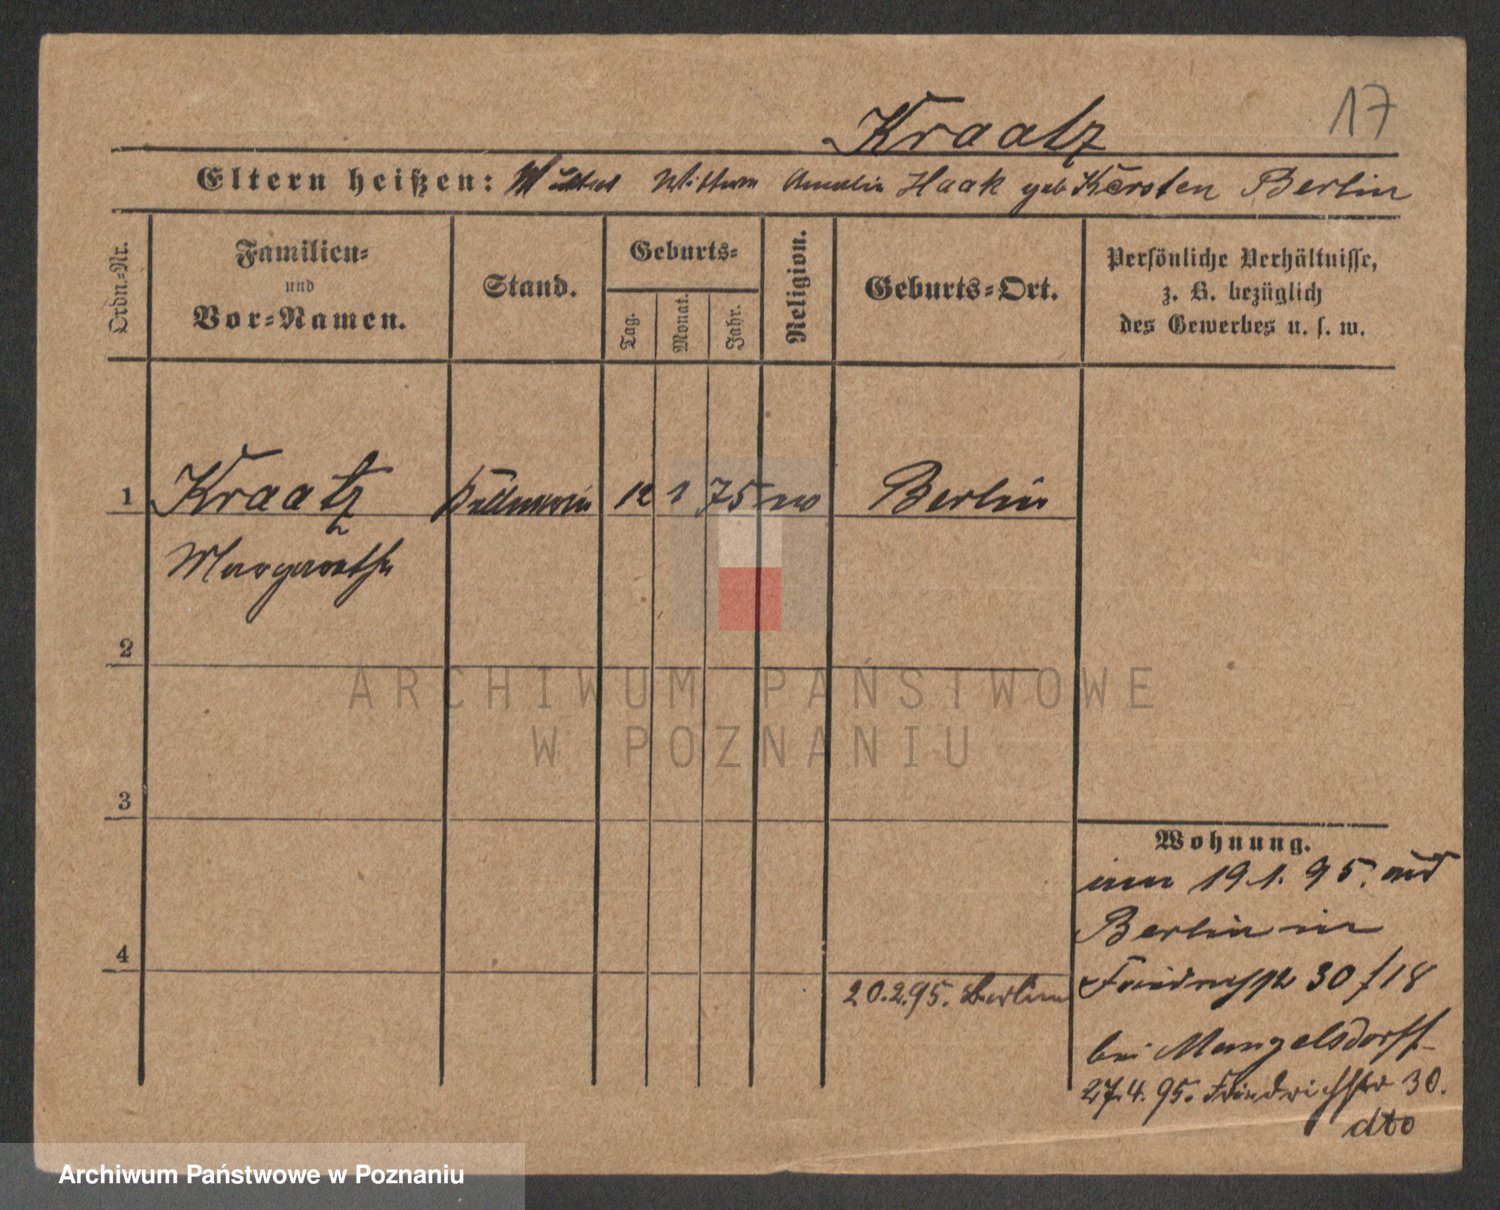 17
Kraatz
Eltern heißen: Mutter Wittwe Amalie Haak geb Kersten Berlin
Ordn.-Nr.
Familien-
und
Vor-Namen.
Stand.
Geburts-
Tag.
Monat.
Jahr.
Religion.
Geburts-Ort.
Persönliche Verhältnisse,
z. B. bezüglich
des Gewerbes u. s. w.
1 Kraatz Kellnerin 12 1 75 ev Berlin
Margarethe
2
ARCHIWUM PAŃSTWOWE
W POZNANIU
3
Wohnung.
19.1.95. aus
Berlin in
4
20.2.95. Berlin
Friedrichstr 30 / 18
bei Mangelsdorff
27.4.95. Friedrichstr 30.
dto
Archiwum Państwowe w Poznaniu